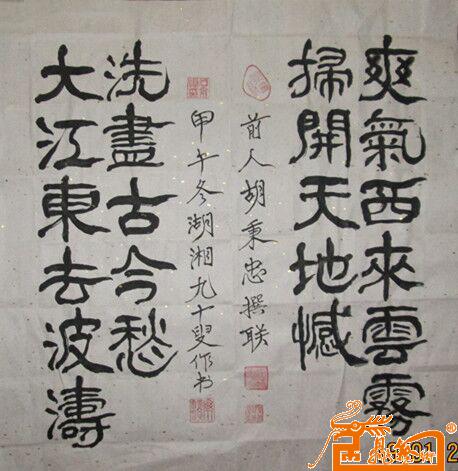 爽氣西來雲霧
掃開天地憾
前人胡秉忠撰联
甲午冬湖湘九十叟作书
大江東去波濤
洗盡古今愁